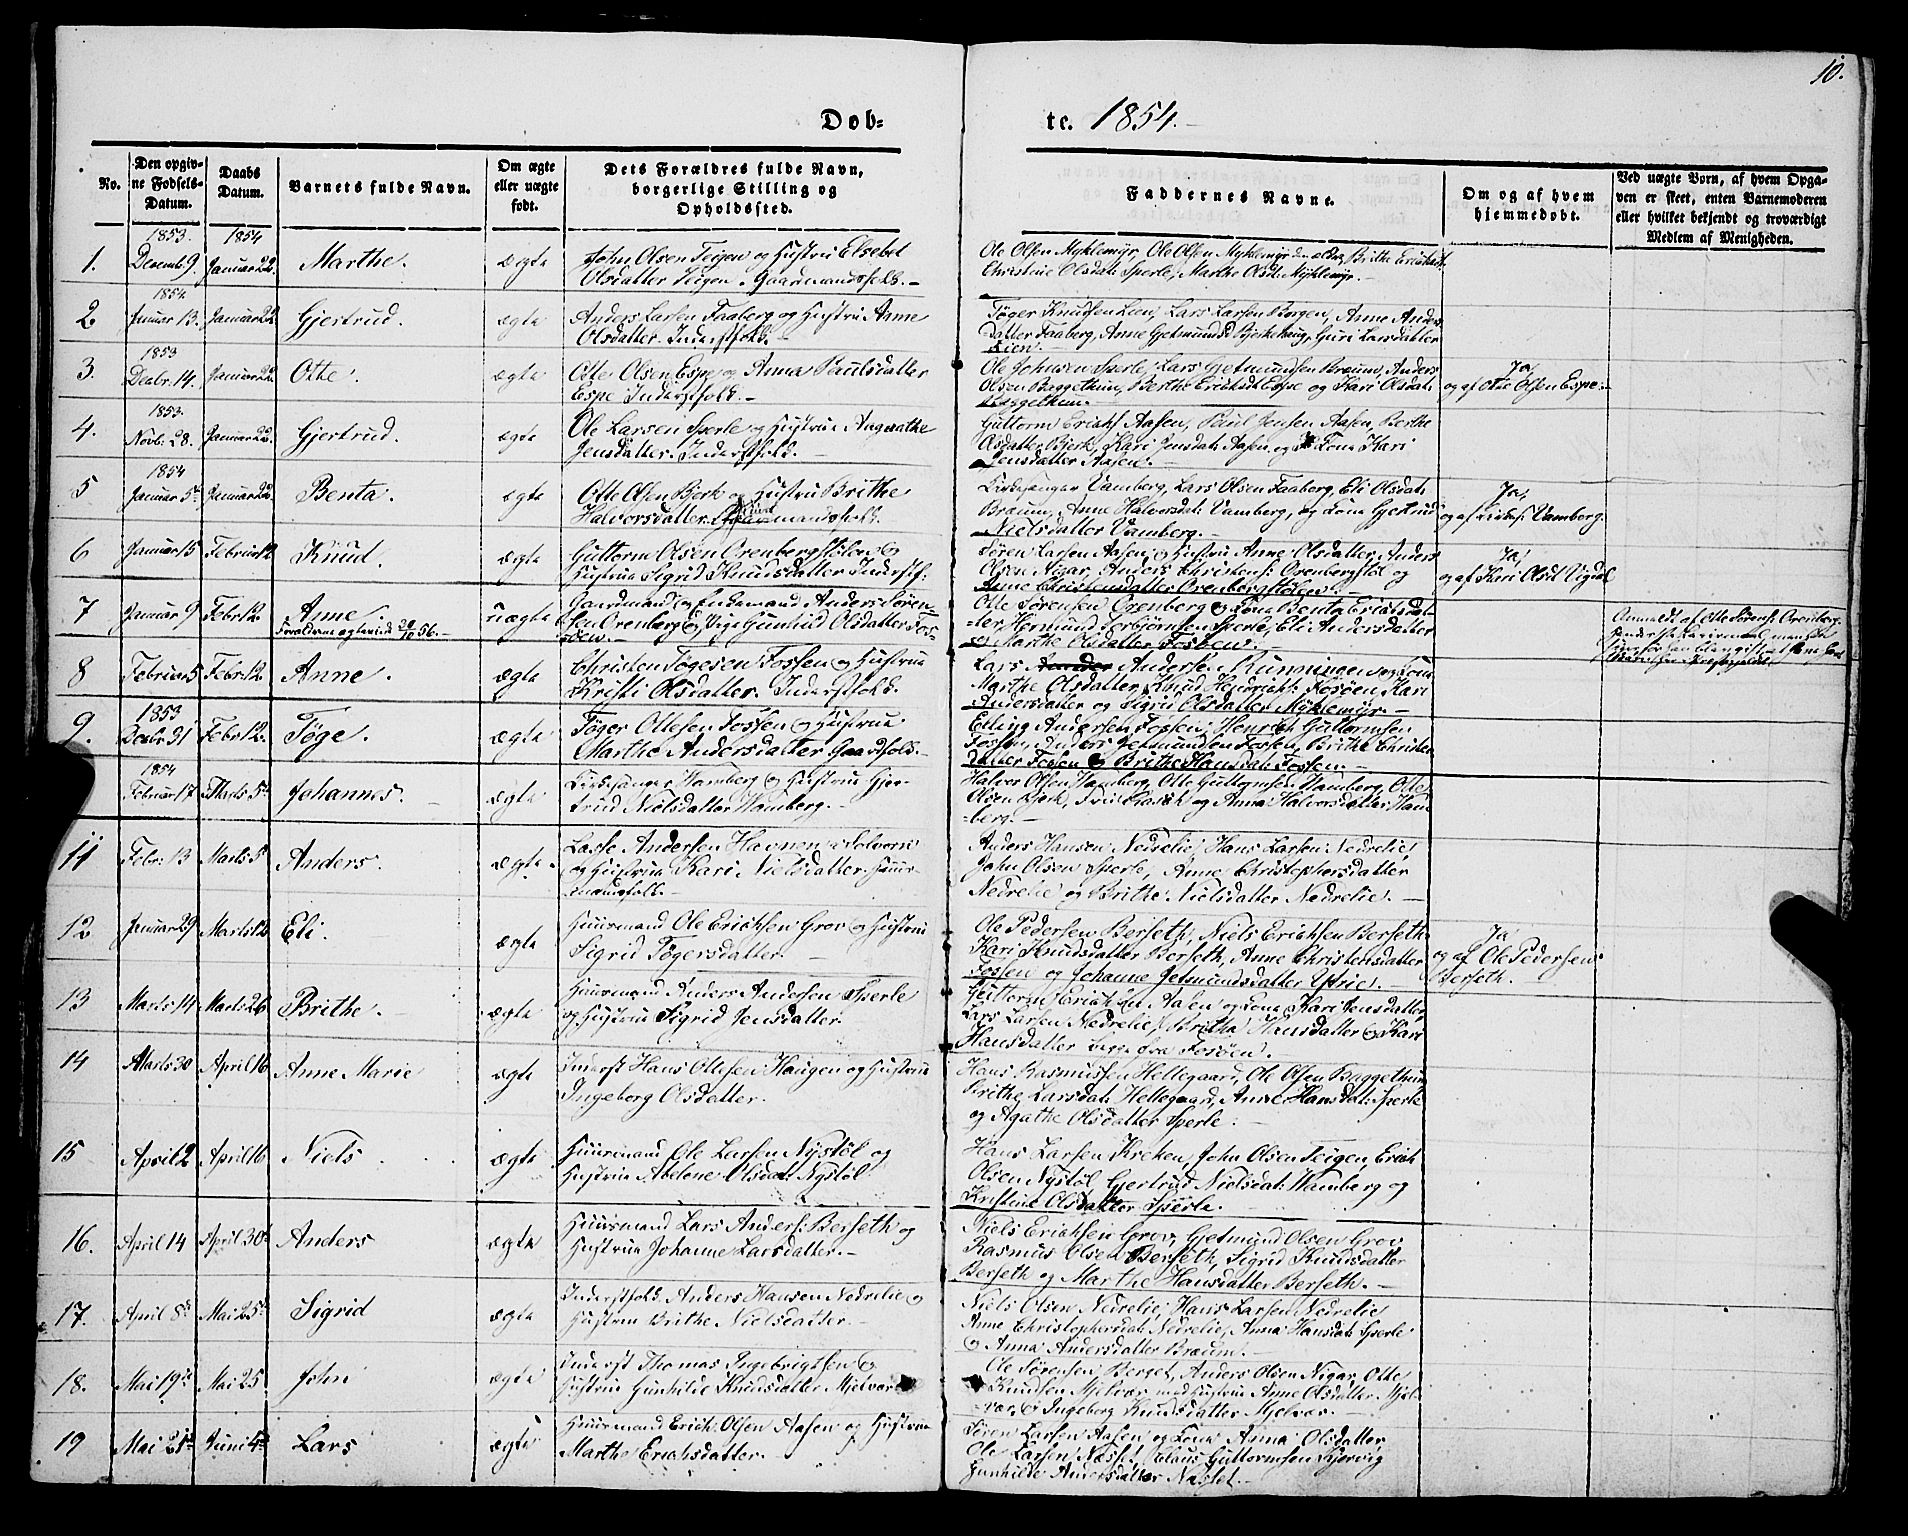 10.
Døb= te. 1854.
No.
Den opgivne Fødsels-Datum.
Daabs Datum.
Barnets fulde Navn.
Om ægte eller uægte født.
Dets Forældres fulde Navn, borgerlige Stilling og Opholdssted.
Faddernes Navne.
Om og af hvem hjemmedøbt.
Ved uægte Børn, af hvem Opgaven er skeet, enten Barnemoderen eller hvilket bekjendt og troværdigt Medlem af Menigheden.
1853. 1854
1. Decemb. 9. Januar 22. Marthe. ægte John Olsen Teigen og Hustru Elsebet
Olsdatter Teigen. Gaardmandsfolk.
Ole Olsen Myklemyr, Ole Olsen Myklemyr den Brithe Erichsdt.
Christine Olsdat: Sperle, Marthe Olsd: Myklemyr.
1854
2. Januar 13. Januar 22. Gjertrud. ægte Anders Larsen Faaberg og Hustru Anne
Olsdatter. Inderstfolk.
Tøger Knudsen Lien, Lars Larsen Borgen, Anne Anders
datter Faaberg, Anne Gjetmundsd Bjerkehaug, Guri Larsdatter
Lien.
1853
3. Decbr. 14. Januar 22. Otte. ægte Otte Olsen Espe og Anna Paulsdatter
Espe Inderstfolk.
Ole Johnsen Sperle, Lars Gjetmundsen Bræum, Anders
Olsen Baggethun, Berthe Erichsdt Espe og Kari Olsdat:
Baggethun.
Ja,
og af Otte Olsen Espe.
1853.
4. Novb. 28. Januar 22. Gjertrud. ægte Ole Larsen Sperle og Hustrue Angenathe
Jensdatter. Inderstfolk.
Guttorm Erichs Aasen, Poul Jensen Aasen, Berthe
Olsdatter Bjerk, Kari Jensdat: Aasen og Kone Kari
Jensdatter Aasen.
1854
5 Januar 5te Januar 22. Benta. ægte Otte Olsen Bjerk og Hustru Brithe
Halvorsdatter. Gaardmandsfolk.
Kirkesanger Vamberg, Lars Olsen Faaberg, Eli Olsdat:
Bræum, Anne Halvorsdat: Vamberg, og Kone Gjertrud
Nielsdatter Vamberg.
Ja,
og af Kirkes: Vamberg.
6 Januar 15 Februar 12 Knud. ægte Guttorm Olsen Orenbergstølen og
Hustrue Sigrid Knudsdatter Inderstf:
Søren Larsen Aasen og Hustru Anne Olsdatter, Anders
Olsen Nigar, Anders Christens: Orenbergstøl og
Anne Christensdatter Orenbergstølen.
Ja,
og af Kari Olsd Vigdal
7 Januar 9 Febr. 12. Anne uægte Gaardmand og Enkemand Anders Søren-
Forældrene ægteviet 20/10 56.
sen Orenberg og Pige Gunhild Olsdatter Fos-
søen.
Otte Sørensen Orenberg og Kone Benta Erichsdat-
ter, Hermund Torbjørnsen Sperle, Eli Andersdatter
og Marthe Olsdatter Fossøen.
Anmeldt af Otte Sørens: Orenberg.
8 Februar 5 Febr. 12. Anne. ægte Christen Tøgesen Fossen og Hustrue
Kristi Olsdatter. Inderstfolk.
Lars Anders: Kumminen og Kone
Marthe Olsdatter, Knud Hendrichs: Fossøen, Kari
Andersdatter og Sigrid Olsdatter Myklemyr.
1853
9. Decbr. 31 Febr. 12. Tøge. ægte Tøger Ottesen Fossen og Hustrue
Marthe Andersdatter Gaardfolk.
Elling Andersen Fossen, Henrik Guttormsen
Fossen, Anders Gjetmundsen Fossen, Brithe Christen
datter Fossen og Brithe Hansdat: Fossen.
1854
Februar 17 Marts 5te Johannes. ægte Kirkesanger Vamberg og Hustrue Gjer-
trud Nielsdatter Vamberg.
Halvor Olsen Vamberg, Otte Guttormsen Vamberg, Otte
Olsen Bjerk, og Anna Halvorsdatter Vam-
berg.
11 Febr: 13 Marts 5 Anders. ægte Lasse Andersen Havnen i Solvorn
og Hustrue Kari Nielsdatter. Huus-
mandsfolk.
Anders Hansen Nedrelie, Hans Larsen Nedrelie,
John Olsen Sperle, Anne Christophersdatter
Nedrelie og Brithe Nielsdatter Nedrelie.
12 Januar 29 Marts 12 Eli. ægte Huusmand Ole Erichsen Grov og Hustrue
Sigrid Tøgersdatter.
Ole Pedersen Berseth, Niels Erichsen Berseth
Kari Knudsdatter Berseth, Anne Christensdatter
Fossen og Johanne Jetmundsdatter Ystrie.
Ja
og af Ole Pedersen
Berseth.
13 Marts 14 Marts 26 Brithe. ægte Huusmand Anders Andersen Sperle
og Hustrue Sigrid Jensdatter.
Guttorm Erichsen Aasen og Kone Kari Jensdatter,
Lars Larsen Nedrelie, Britha Hansdatter og Kari
Hansdatter begge fra Fosøen.
14 Marts 30 April 16 Anne Marie ægte Inderst Hans Ottesen Haugen og Hustrue
Ingeborg Olsdatter.
Hans Rasmussen Hellegaard, Ole Olsen Baggethun
Brithe Larsdat: Hellegaard, Anne Hansdat: Sperle
og Agathe Olsdatter Sperle.
15 April 2 April 16 Niels ægte Huusmand Ole Larsen Nystøl og
Hustrue Abelone Olsdat: Nystøl
Hans Larsen Kreken, John Olsen Teigen, Erich
Olsen Nystøl Gjertrud Nielsdat: Vamberg og
Kristine Olsdatter Sperle.
16. April 14 April 30te Anders ægte Huusmand Lars Anders: Berseth og
Hustrue Johanne Larsdatter.
Niels Erichsen Grov, Gjetmund Olsen Grov
Rasmus Olsen Berseth, Sigrid Knudsdatter
Berseth og Marthe Hansdatter Berseth.
17. April 8de Mai 25te Sigrid ægte Inderstfolk Anders Hansen Nedrelie og
Hustrue Brithe Nielsdatter.
Niels Olsen Nedrelie, Hans Larsen Nedrelie
Anne Christophersdat: Nedrelie, Anna Hansdat: Sperle
og Anna Andersdatter Bræum.
18. Mai 19de Mai 25 John ægte Inderst Thomas Ingebrigtsen og
Hustrue Gunhilde Knudsdatter Mjelvær
Ole Sørensen Berget, Anders Olsen Nigar, Otte
Knudsen Mjelvær med Hustrue Anne Olsdatter Mjel-
vær, og Ingeborg Knudsdatter Mjelvær.
19 Mai 21de Juni 4de Lars ægte Huusmand Erich Olsen Aasen og Hustrue
Marthe Erichsdatter.
Søren Larsen Aasen og Kone Anna Olsdatter
Ole Larsen Næss, Claus Guttormsen Kjervig
Gunhilde Andersdatter Næstet.